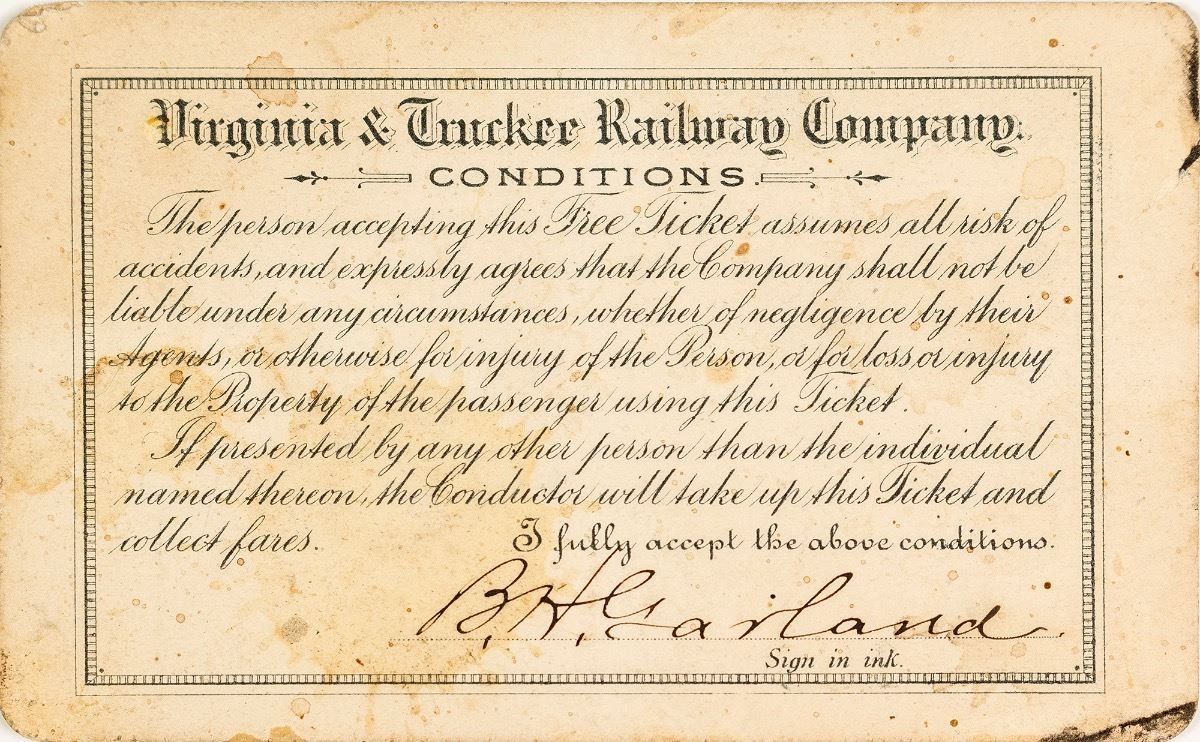 Virginia & Truckee Railway Company.
CONDITIONS.
The person accepting this Free Ticket assumes all risk of
accidents, and expressly agrees that the Company shall not be
liable under any circumstances, whether of negligence by their
Agents, or otherwise for injury of the Person, or for loss or injury
to the Property of the passenger using this Ticket.
If presented by any other person than the individual
named thereon, the Conductor will take up this Ticket and
collect fares. I fully accept the above conditions.
B. H. Garland
Sign in ink.